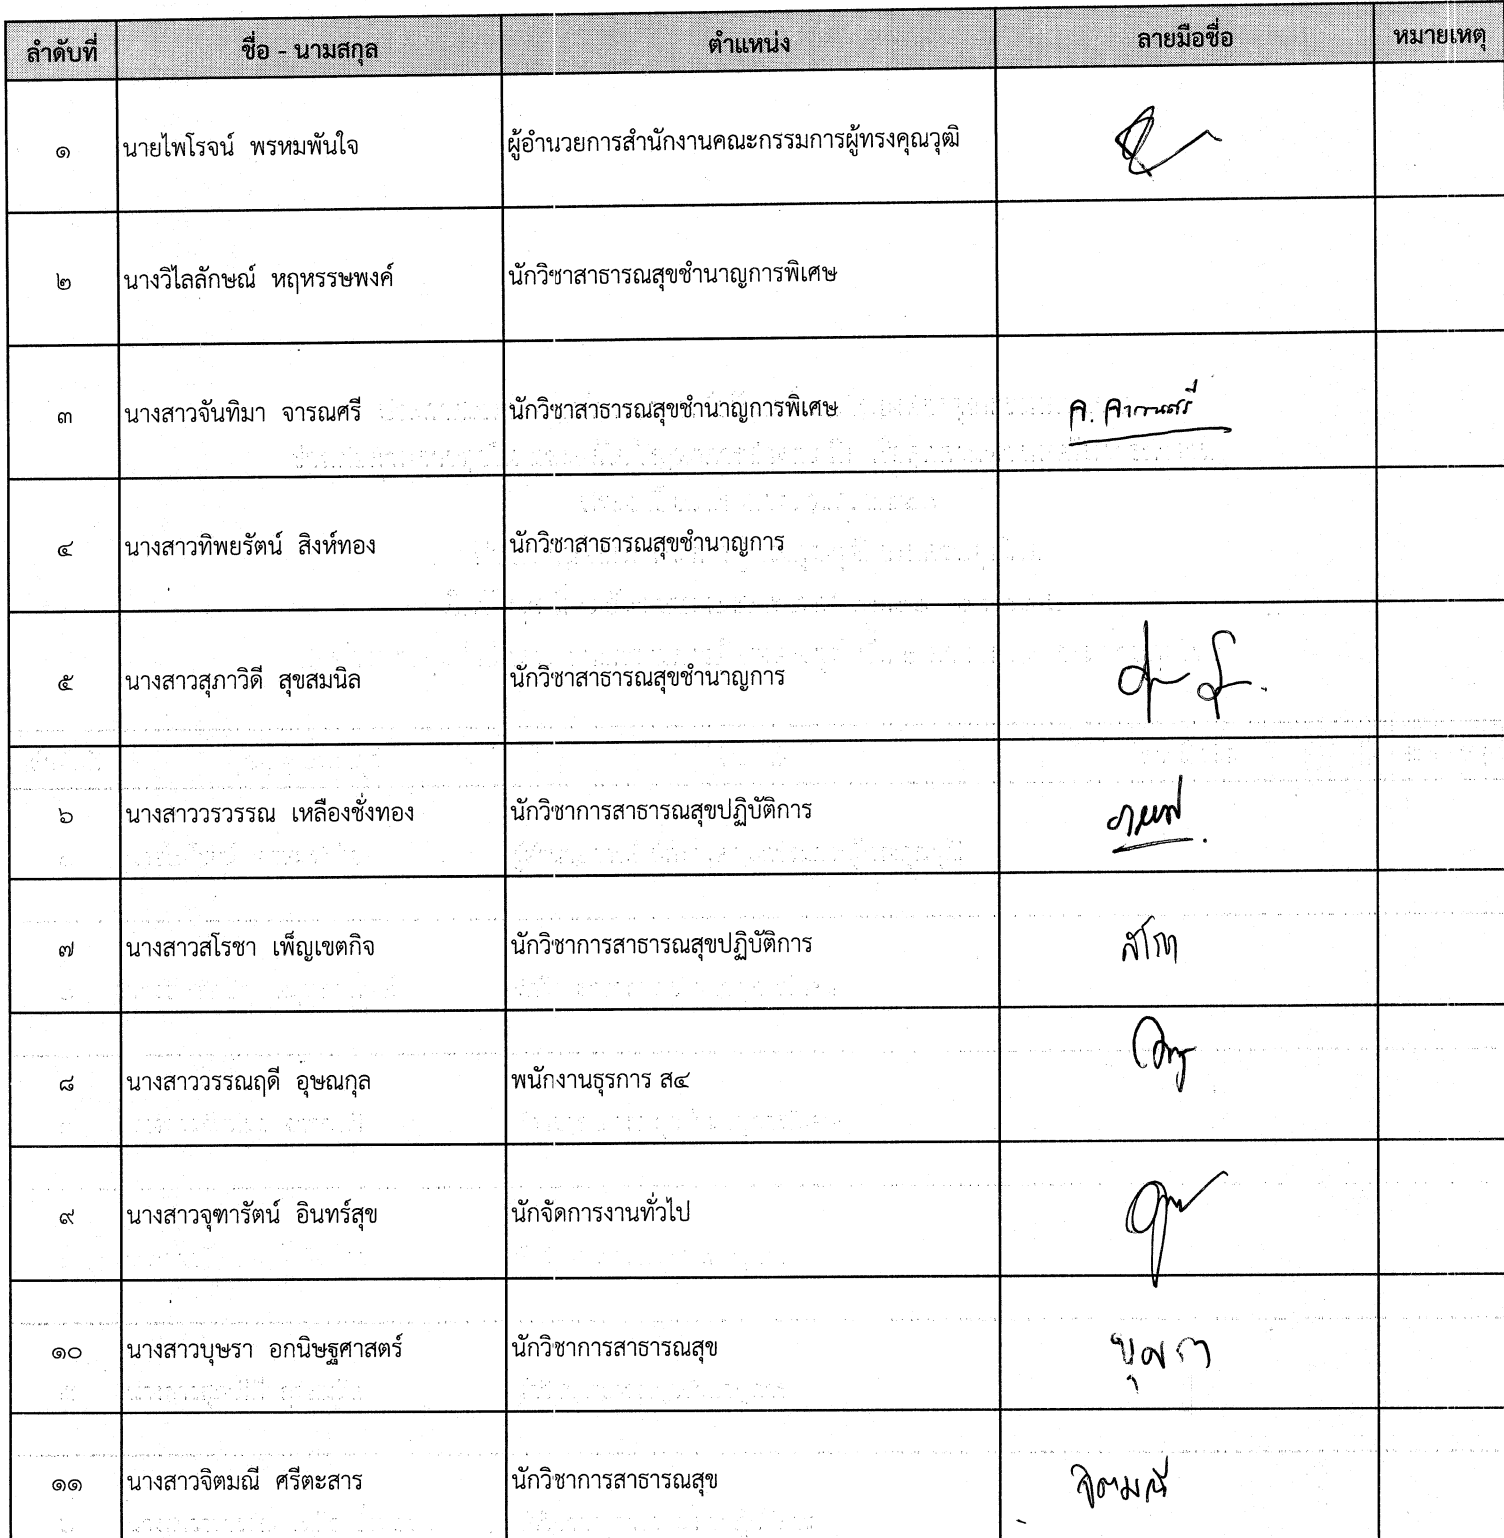 ลำดับที่ ชื่อ - นามสกุล ตำแหน่ง ลายมือชื่อ หมายเหตุ
๑ นายไพโรจน์ พรหมพันใจ ผู้อำนวยการสำนักงานคณะกรรมการผู้ทรงคุณวุฒิ
๒ นางวิไลลักษณ์ หฤหรรษพงค์ นักวิชาสาธารณสุขชำนาญการพิเศษ
๓ นางสาวจันทิมา จารณศรี นักวิชาสาธารณสุขชำนาญการพิเศษ
๔ นางสาวทิพยรัตน์ สิงห์ทอง นักวิชาสาธารณสุขชำนาญการ
๕ นางสาวสุภาวิดี สุขสมนิล นักวิชาสาธารณสุขชำนาญการ
๖ นางสาววรวรรณ เหลืองชั่งทอง นักวิชาการสาธารณสุขปฏิบัติการ
๗ นางสาวสโรชา เพ็ญเขตกิจ นักวิชาการสาธารณสุขปฏิบัติการ สโรชา
๘ นางสาววรรณฤดี อุษณกุล พนักงานธุรการ ส๔
๙ นางสาวจุฑารัตน์ อินทร์สุข นักจัดการงานทั่วไป
๑๐ นางสาวบุษรา อกนิษฐศาสตร์ นักวิชาการสาธารณสุข บุษรา
๑๑ นางสาวจิตมณี ศรีตะสาร นักวิชาการสาธารณสุข จิตมณี